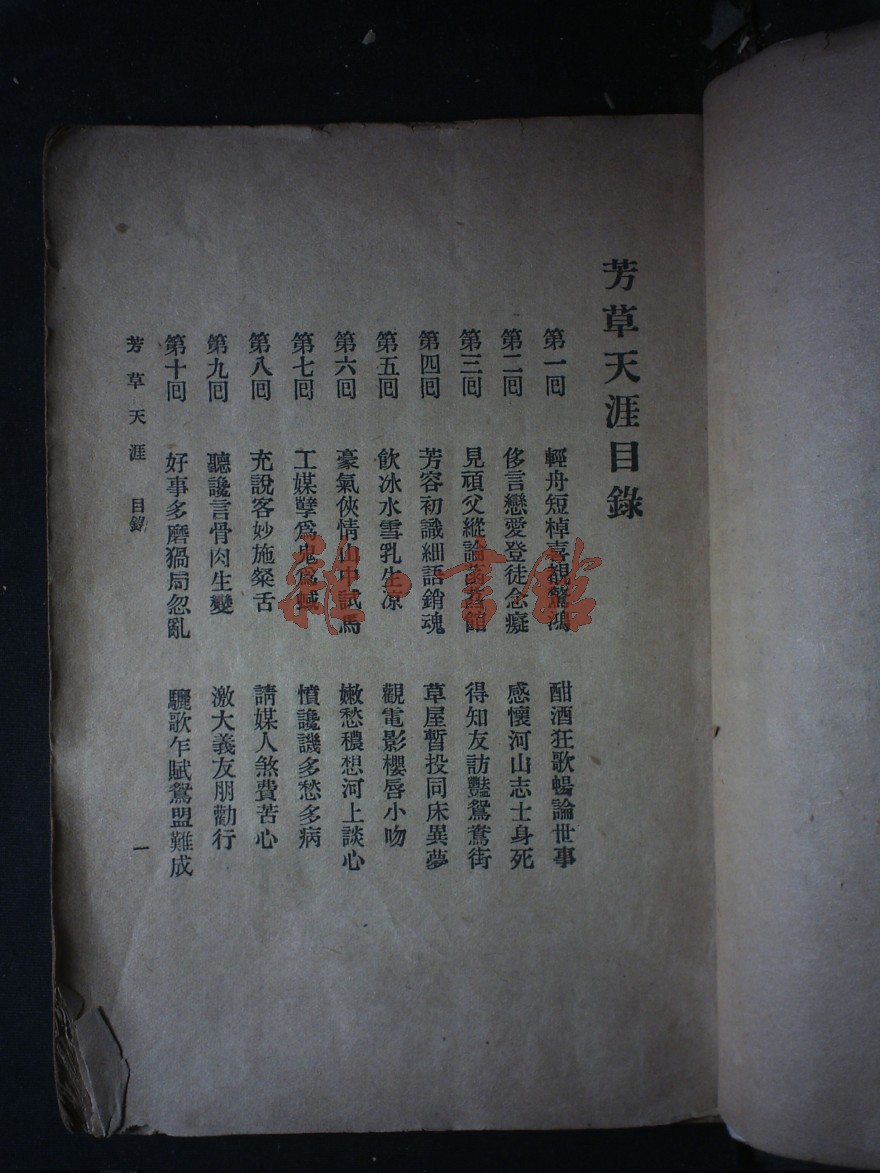 芳草天涯目錄
第一囘 輕舟短棹喜覩驚鴻 酣酒狂歌暢論世事
第二囘 侈言戀愛登徒念癡 感懷河山志士身死
第三囘 見頑父縱論 舘 得知友訪豔鴛鴦街
第四囘 芳容初識細語銷魂 草屋暫投同床異夢
第五囘 飲冰水雪乳生凉 觀電影櫻唇小吻
第六囘 豪氣俠情山中試馬 嫩愁穠想河上談心
第七囘 工媒孽爲鬼爲蜮 憤讒譏多愁多病
第八囘 充說客妙施粲舌 請媒人煞費苦心
第九囘 聽讒言骨肉生變 激大義友朋勸行
第十囘 好事多磨猧局忽亂 驪歌乍賦鴛盟難成
芳草天涯 目錄
一
雜·書舘